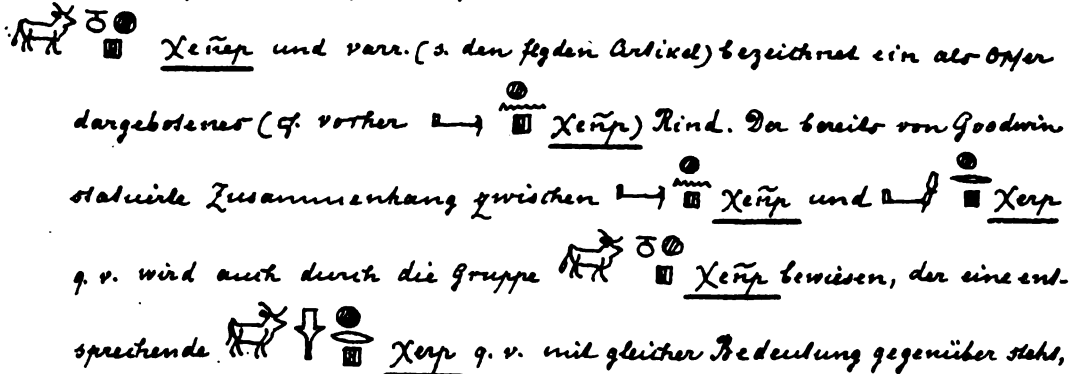 χeñep und varr. (s. den flgden Artikel) bezeichnet ein als Opfer
dargebotenes (cf. vorher χeñp) Rind. Der bereits von Goodwin
statuirte Zusammenhang zwischen χeñp und χerp
q. v. wird auch durch die Gruppe χeñp bewiesen, der eine ent-
sprechende χerp q. v. mit gleicher Bedeutung gegenüber steht,